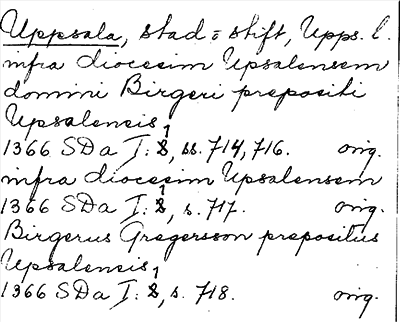 Uppsala, stad = stift, Upps. l.
infra diocesim Upsalensem
domini Birgeri prepositi
Upsalensis,
1366 SDa I: 8, ss. 714, 716. orig.
infra diocesim Upsalensem
1366 SDa I: 8, s. 717. orig.
Birgerus Gregersson prepositus
Upsalensis,
1366 SDa I: 8, s. 718. orig.